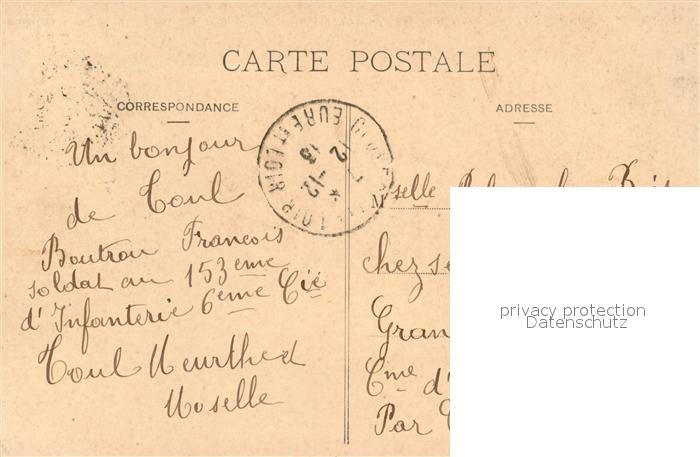 CARTE POSTALE
CORRESPONDANCE
ADRESSE
Un bonjour
de Toul
Boutrou Francois
soldat au 153eme
d'Infanterie 6eme Cie
Toul Meurthe et
Moselle
EURE ET LOIR
12
7-12
13
Mselle
chez se
Gran
Cme d'
Par
privacy protection
Datenschutz